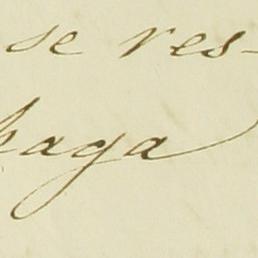 se res-
haga